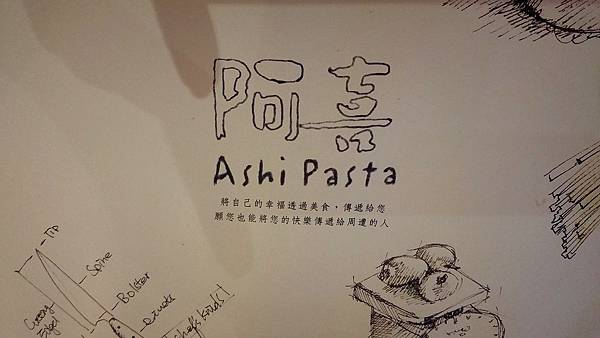 阿喜
Ashi Pasta
將自己的幸福透過美食，傳遞給您
願您也能將您的快樂傳遞給周遭的人
Tip
Spine
Bolster
Cutting
Edge
Chef's Knife!